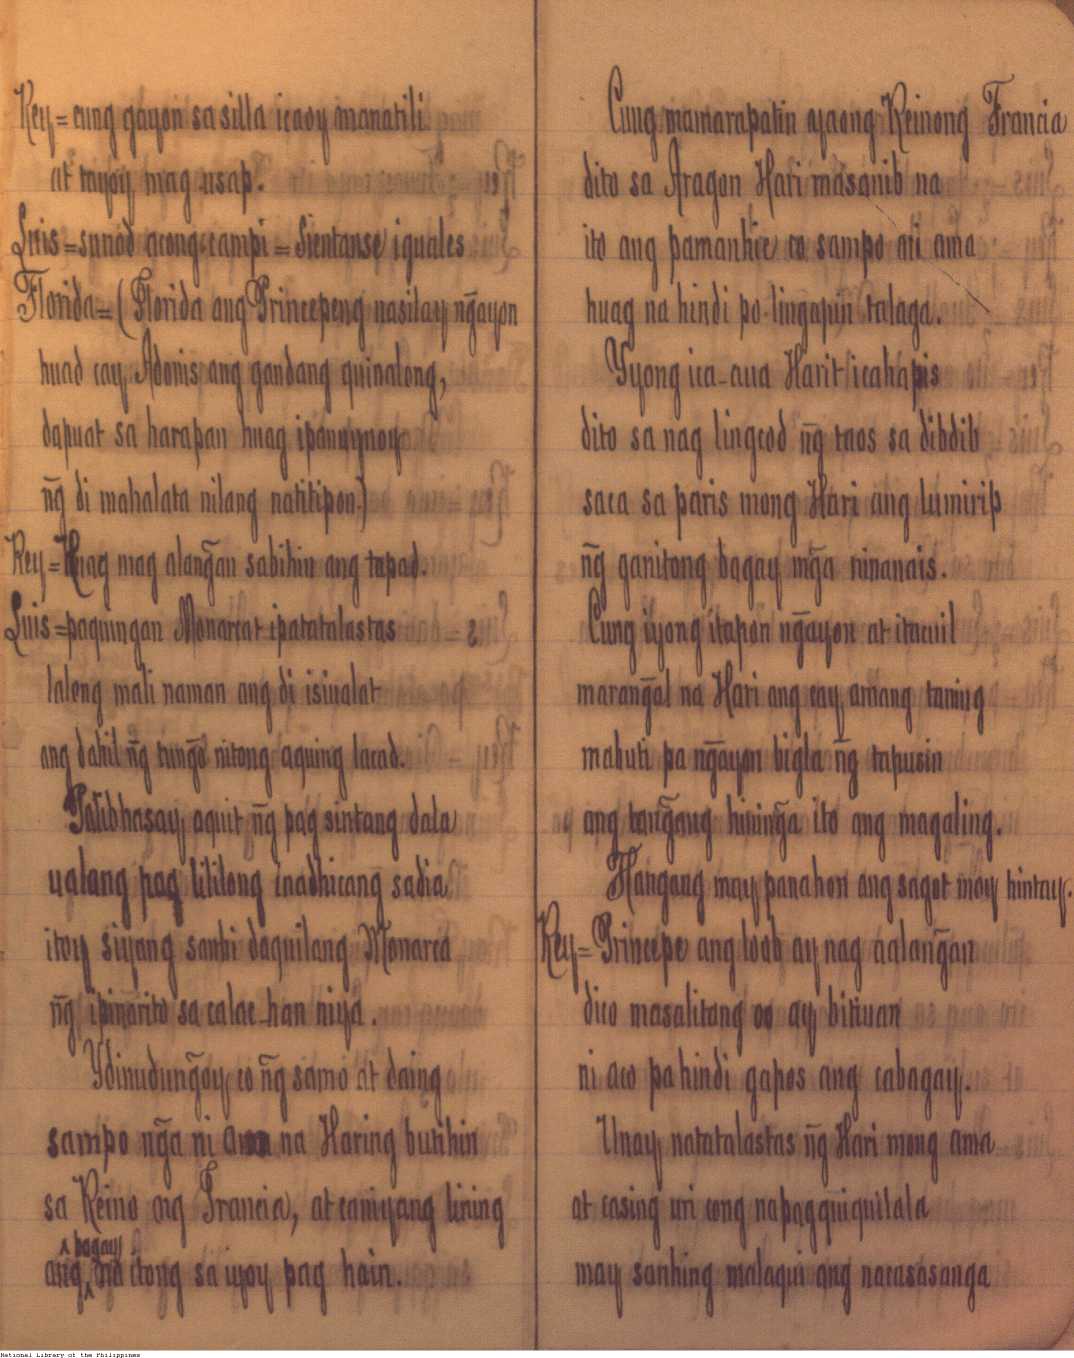 Rey = cung gayon sa silla icaoy manatili
at tayoy mag usap.
Luis = sunod acong campi = Sientanse iguales
Florida = ( Florida ang Princepeng nasilay ng̃ayon
huad cay Adonis ang gandang quinalong,
dapuat sa harapan huag
ñg di mahalata nilang natitipon.)
Rey = Huag mag alang̃an sabihin ang tapad.
Luis = paquingan Monarcat ipatatalastas
laleng mali naman ang di isiualat
ang dahil ñg tung̃o nitong aquing lacad.
Palibhasay, aquit ñg pag sintang dala
ualang pag lililong inadhicang sadia
itoy siyang sanhi daquilang Monarca
ñg ipinarito sa calac-han niya.
Ydinudung̃oy co ñg samo at daing
sampo ng̃a ni ama na Haring butihin
sa Reino ang Francia, at caniyang liring
bagay
ang na itong sa iyoy pag hain.
Cung mamarapatin ayaong Reinong Francia
dito sa Aragon Hari masanib na
ito ang pamanhic co sampo ati ama
huag na hindi po ling̃apin talaga.
Yyong ica-aua Harit icahapis
dito sa nag lingcod ñg taos sa dibdib
saca sa paris mong Hari ang lumirip
ñg ganitong bagay mg̃a ninanais.
Cung iyong itapon ng̃ayon at itacuil
marang̃al na Hari ang cay amang taning
mabuti pa ng̃ayon bigla ñg tapusin
ang tang̃ang hining̃a ito ang magaling.
Hangang may panahon ang sagot moy hintay.
Rey = Princepe ang loob ay nag aalang̃an
dico masalitang oo ay bitiuan
ni aco pa hindi gapos ang cabagay.
Unay natatalastas ñg Hari mong ama
at casing uri cong napagquiquilala
may sanhing malaqui ang nacasasanga